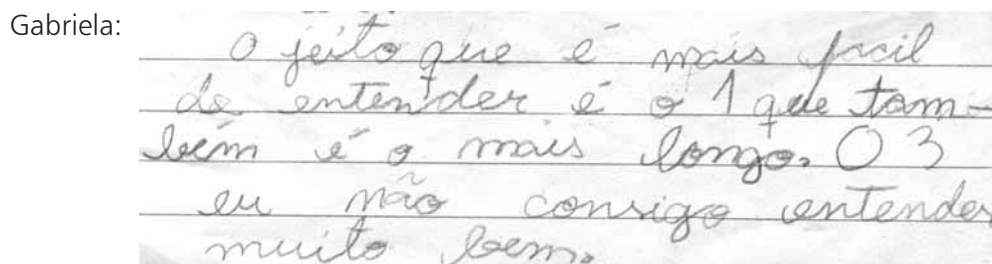 Gabriela:
O jeito que é mais facil
de entender é o 1 que tam-
bém é o mais longo. O 3
eu não consigo entender
muito bem.